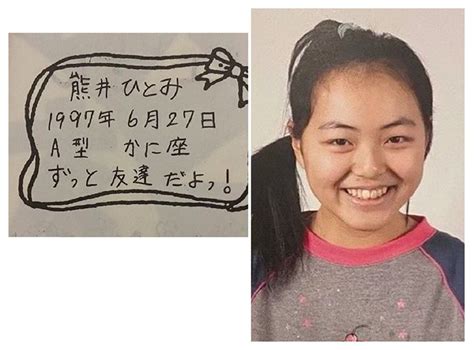 熊井ひとみ
1997年 6月27日
A型 かに座
ずっと友達だよっ!